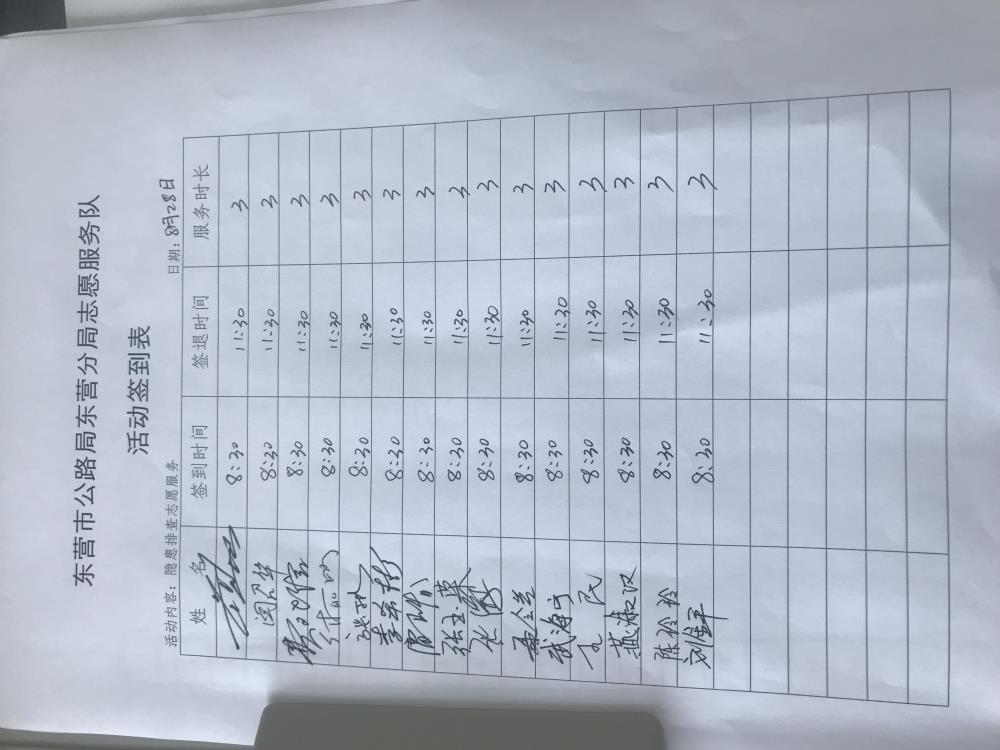 东营市公路局东营分局志愿服务队
活动签到表
活动内容：隐患排查志愿服务 日期：8月28日
姓 名 签到时间 签退时间 服务时长
8:30 11:30 3
8:30 11:30 3
8:30 11:30 3
8:30 11:30 3
8:30 11:30 3
8:30 11:30 3
8:30 11:30 3
张玉荣 8:30 11:30 3
张 8:30 11:30 3
8:30 11:30 3
武海宁 8:30 11:30 3
民 8:30 11:30 3
燕淑汉 8:30 11:30 3
陈玲玲 8:30 11:30 3
刘金平 8:30 11:30 3